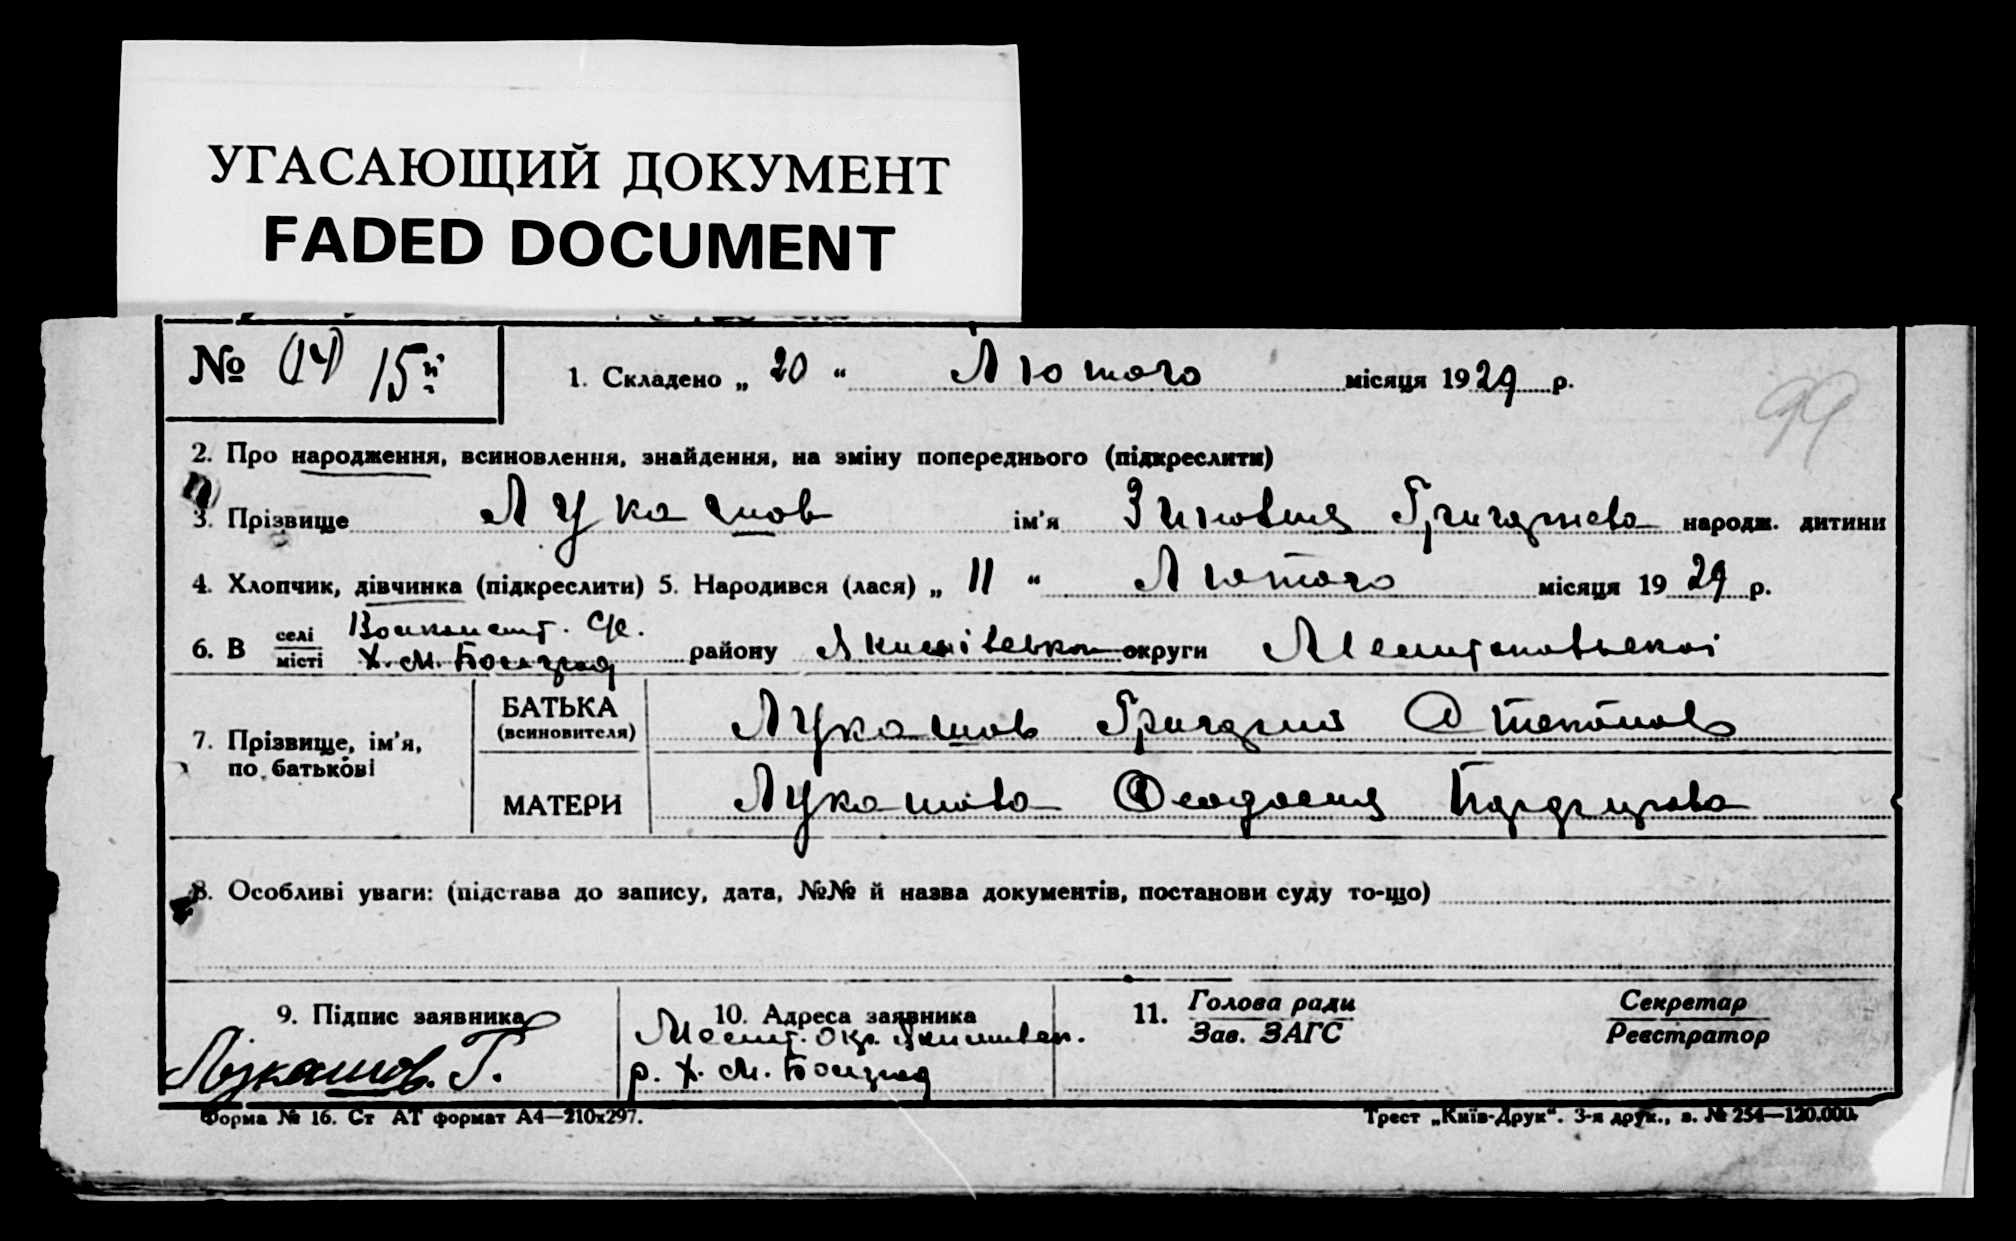 УГАСАЮЩИЙ ДОКУМЕНТ
FADED DOCUMENT
№ 14 15й
1. Складено „ 20 “ Лютого місяця 1929 р.
99
2. Про народження, всиновлення, знайдення, на зміну попереднього (підкреслити)
3. Прізвище Лукашов ім'я Зиновия Григориева народж. дитини
4. Хлопчик, дівчинка (підкреслити) 5. Народився (лася) „ 11 “ Лютого місяця 1929 р.
6. В селі місті х. М. району округи
7. Прізвище, ім'я, по батькові
БАТЬКА (всиновителя) Лукашов Григорий
МАТЕРИ Лукашова Феодосия
8. Особливі уваги: (підстава до запису, дата, №№ й назва документів, постанови суду то-що)
9. Підпис заявника
Лукашов. Г.
10. Адреса заявника
окр.
р. х. М.
11. Голова ради Зав. ЗАГС
Секретар Реєстратор
Форма № 16. Ст АТ формат А4—210х297.
Трест „Київ-Друк“. 3-я друк., в. № 254—120.000.